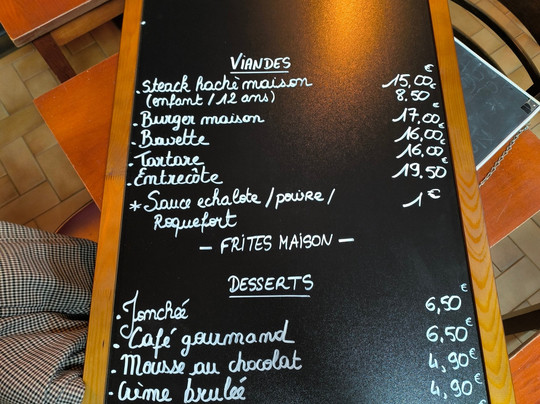 VIANDES
€
. Steack haché maison 15,00€
(enfant / 12 ans) 8,50€
. Burger maison 17,00€
. Bavette 16,00€
. Tartare 16,00€
. Entrecôte 19,50
* Sauce echalote / poivre / 1€
Roquefort
— FRITES MAISON —
DESSERTS
. Jonchée 6,50€
. Café gourmand 6.50€
. Mousse au chocolat 4,90€
. Crème brulée 4,90€